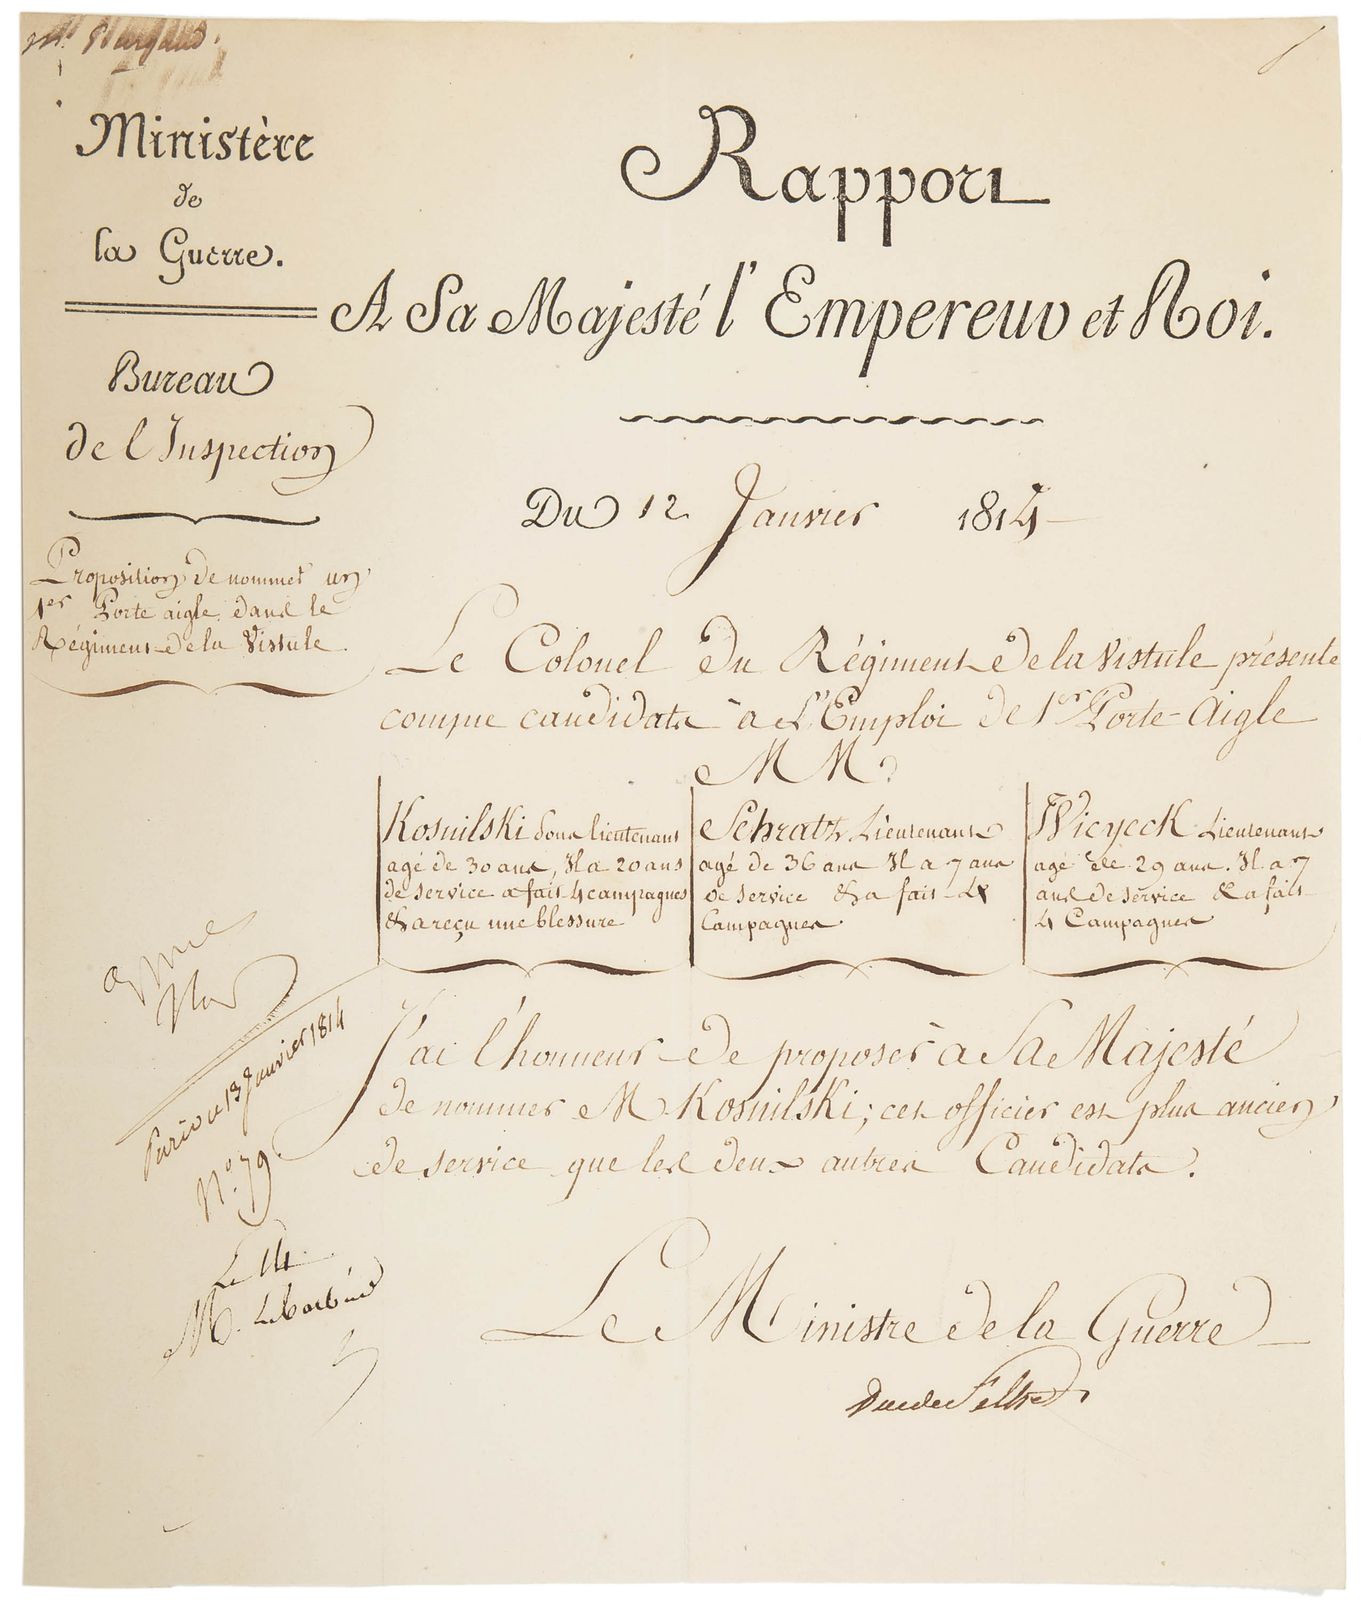 Ministère
de
la Guerre.
Bureau
de l'Inspection
Proposition de nommer un
1er Porte aigle dans le
Régiment de la Vistule.
Rapport
A Sa Majesté l'Empereur et Roi.
Du 12 Janvier 1814
Le Colonel du Régiment de la Vistule présente
comme candidats à l'Emploi de 1er Porte-Aigle
MM.
Kosnilski Sous lieutenant
agé de 30 ans, Il a 20 ans
de service a fait 4 campagnes
& a reçu une blessure
Schratz Lieutenant
agé de 36 ans Il a 7 ans
de service & a fait 4
Campagnes
Wieyeck Lieutenant
agé de 29 ans. Il a 7
ans de service & a fait
4 Campagnes
J'ai l'honneur de proposer à Sa Majesté
de nommer M. Kosnilski; cet officier est plus ancien
de service que les deux autres Candidats.
Le Ministre de la Guerre
Duc de Feltre
Paris ce 13 Janvier 1814
N.o 79
Le 14
M.